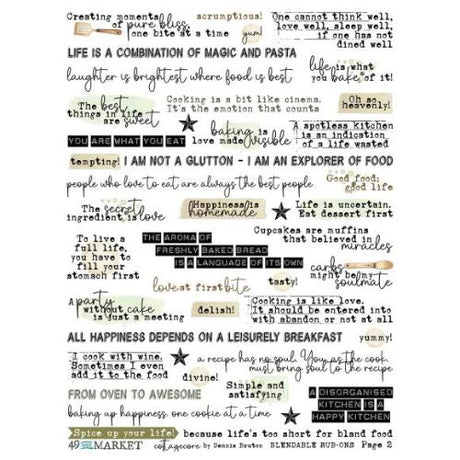 Creating moments
of pure bliss,
one bite at a time
scrumptious!
yum!
One cannot think well,
love well, sleep well,
if one has not
dined well
LIFE IS A COMBINATION OF MAGIC AND PASTA
life is what
you bake of it!
laughter is brightest where food is best
The best
things in life
are sweet
Cooking is a bit like cinema.
It's the emotion that counts
Oh so
heavenly!
YOU ARE WHAT YOU EAT
baking is
love made visible
A spotless kitchen
is an indication
of a life wasted
tempting!
I AM NOT A GLUTTON - I AM AN EXPLORER OF FOOD
people who love to eat are always the best people
Good food;
good life
The secret
ingredient is love
Happiness is
homemade
Life is uncertain.
Eat dessert first
To live a
full life,
you have to
fill your
stomach first
THE AROMA OF
FRESHLY BAKED BREAD
IS A LANGUAGE OF ITS OWN
Cupcakes are muffins
that believed in
miracles
love at first bite
tasty!
carbs
might be my
soulmate
A party
without cake
is just a meeting
delish!
Cooking is like love.
It should be entered into
with abandon or not at all
ALL HAPPINESS DEPENDS ON A LEISURELY BREAKFAST
yummy!
I cook with wine.
Sometimes I even
add it to the food
a recipe has no soul. You as the cook
must bring soul to the recipe
divine!
FROM OVEN TO AWESOME
Simple and
satisfying
A DISORGANISED
KITCHEN IS A
HAPPY KITCHEN
baking up happiness, one cookie at a time
Spice up your life!
because life's too short for bland food
49 AND MARKET
cottagecore by Dennis Bruton
BLENDABLE RUB-ONS
Page 2